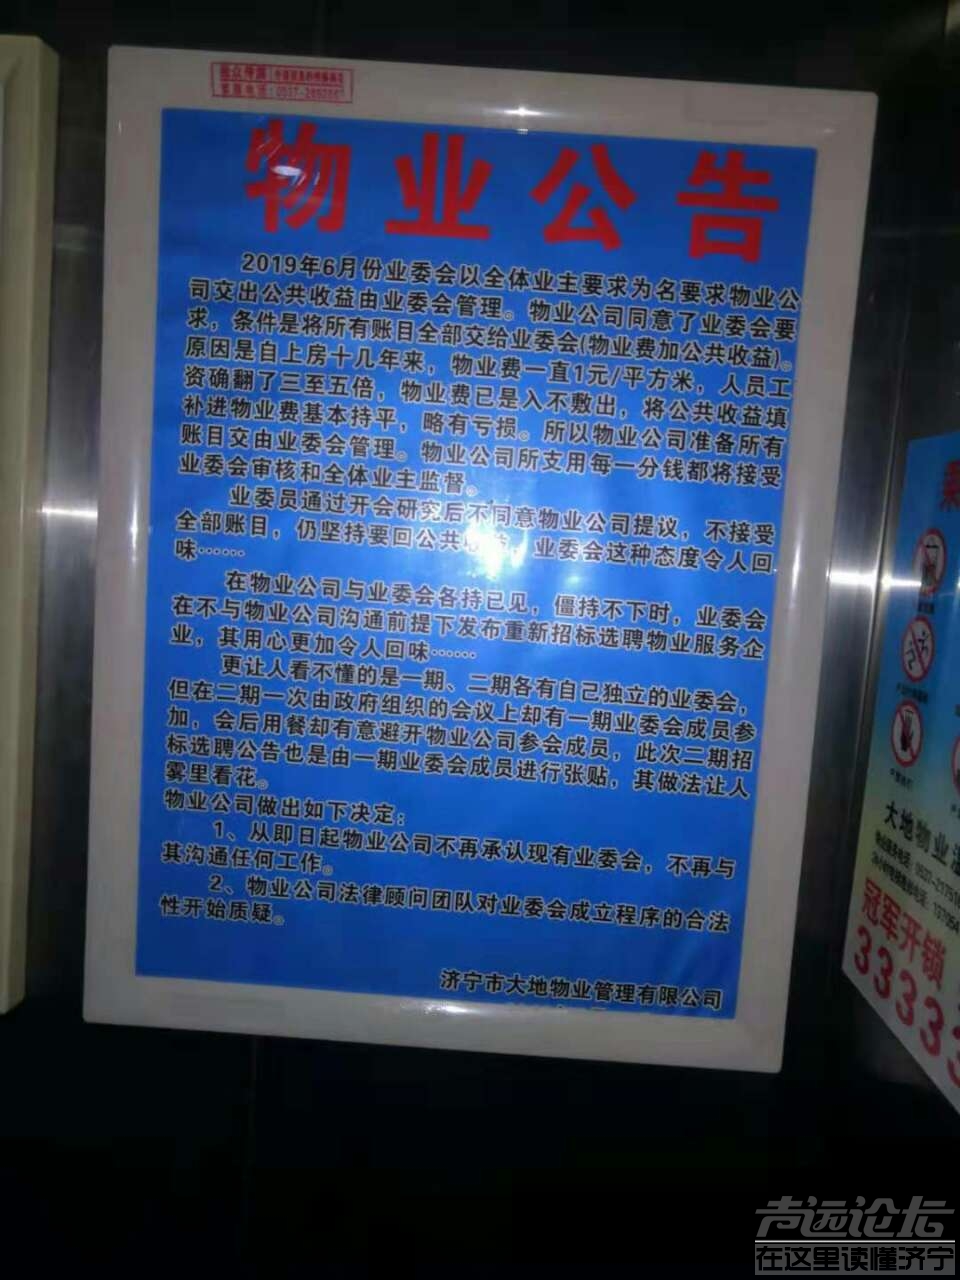 物业公告
2019年6月份业委会以全体业主要求为名要求物业公
司交出公共收益由业委会管理。物业公司同意了业委会要
求，条件是将所有账目全部交给业委会(物业费加公共收益)。
原因是自上房十几年来，物业费一直1元/平方米，人员工
资确翻了三至五倍，物业费已是入不敷出，将公共收益填
补进物业费基本持平，略有亏损。所以物业公司准备所有
账目交由业委会管理。物业公司所支用每一分钱都将接受
业委会审核和全体业主监督。
业委员通过开会研究后不同意物业公司提议，不接受
全部账目，仍坚持要回公共，业委会这种态度令人回
味……
在物业公司与业委会各持已见，僵持不下时，业委会
在不与物业公司沟通前提下发布重新招标选聘物业服务企
业，其用心更加令人回味……
更让人看不懂的是一期、二期各有自己独立的业委会，
但在二期一次由政府组织的会议上却有一期业委会成员参
加，会后用餐却有意避开物业公司参会成员，此次二期招
标选聘公告也是由一期业委会成员进行张贴，其做法让人
雾里看花。
物业公司做出如下决定：
1、从即日起物业公司不再承认现有业委会，不再与
其沟通任何工作。
2、物业公司法律顾问团队对业委会成立程序的合法
性开始质疑。
济宁市大地物业管理有限公司
大地物业
冠军开锁
3333
声远论坛
在这里读懂济宁